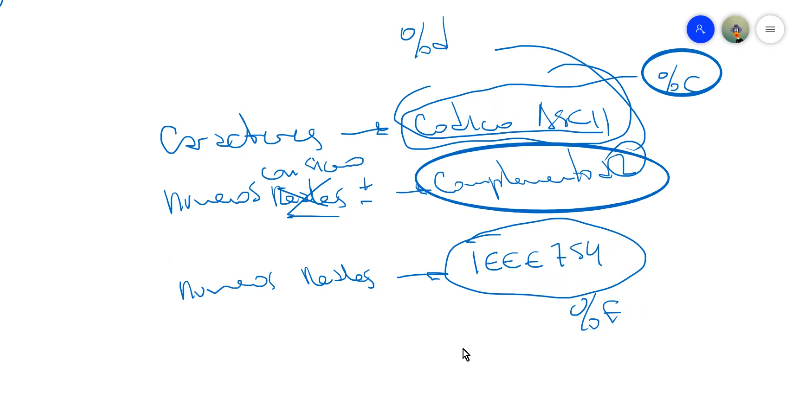 %d
%c
Caracteres → Codigo ASCII
con signo
Numeros Reales ± → Complemento a 2
Numeros Reales → IEEE 754
%f